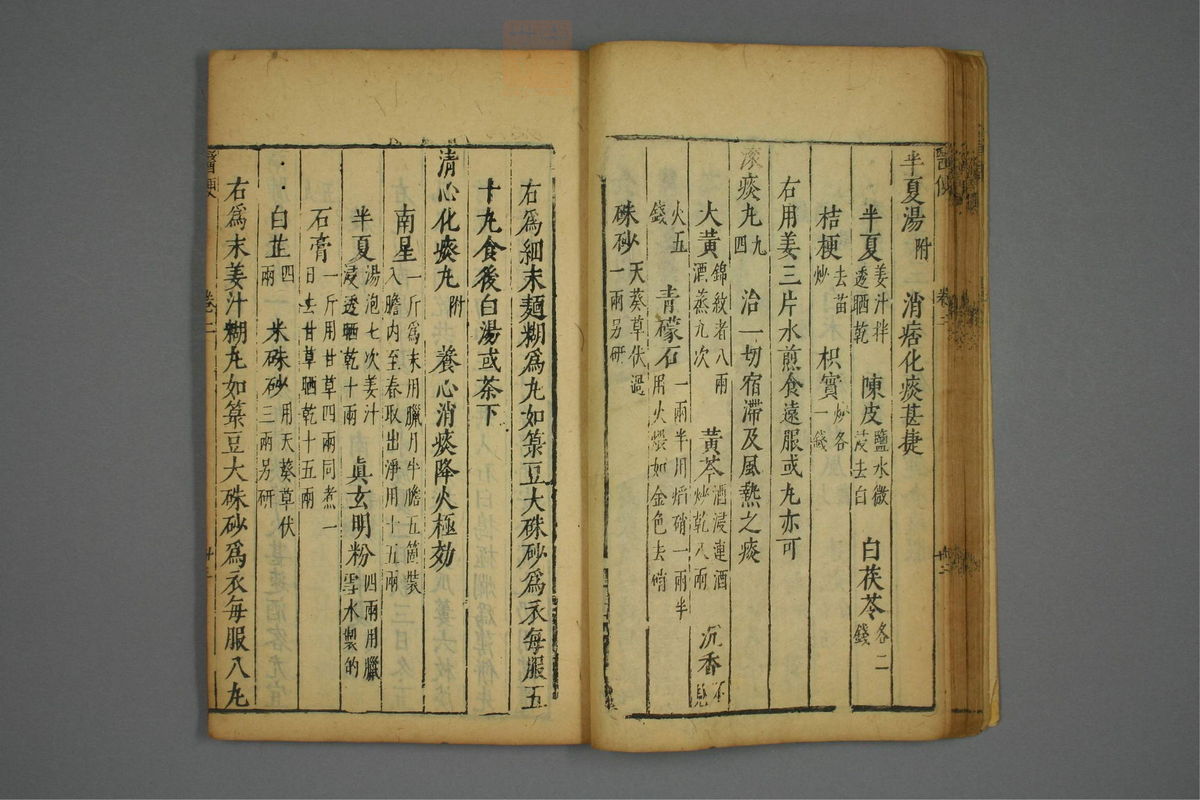 半夏湯 附 消痞化痰甚捷
半夏 姜汁拌透晒乾 陳皮 鹽水微浸去白 白茯苓 各二錢
桔梗 去苗炒 枳實 炒各一錢
右用姜三片水煎食遠服或丸亦可
滚痰丸 九四 治一切宿滯及風熱之痰
大黄 錦紋者八兩酒蒸九次 黄芩 酒浸連酒炒乾八兩 沉香 不見
火五錢 青礞石 一兩半用焰硝一兩半用火煅如金色去硝
硃砂 天葵草伏過一兩另研
右爲細末麵糊爲丸如菉豆大硃砂爲衣每服五
十丸食後白湯或茶下
清心化痰丸 附 養心消痰降火極効
南星 一斤爲末用臘月牛膽五箇裝入膽内至春取出淨用十五兩
半夏 湯泡七次姜汁浸透晒乾十兩 眞玄明粉 四兩用臘雪水製的
石膏 一斤用甘草四兩同煮一日去甘草晒乾十五兩
白芷 四兩 米硃砂 用天葵草伏三兩另研
右爲末姜汁糊丸如菉豆大硃砂爲衣每服八九
卷二